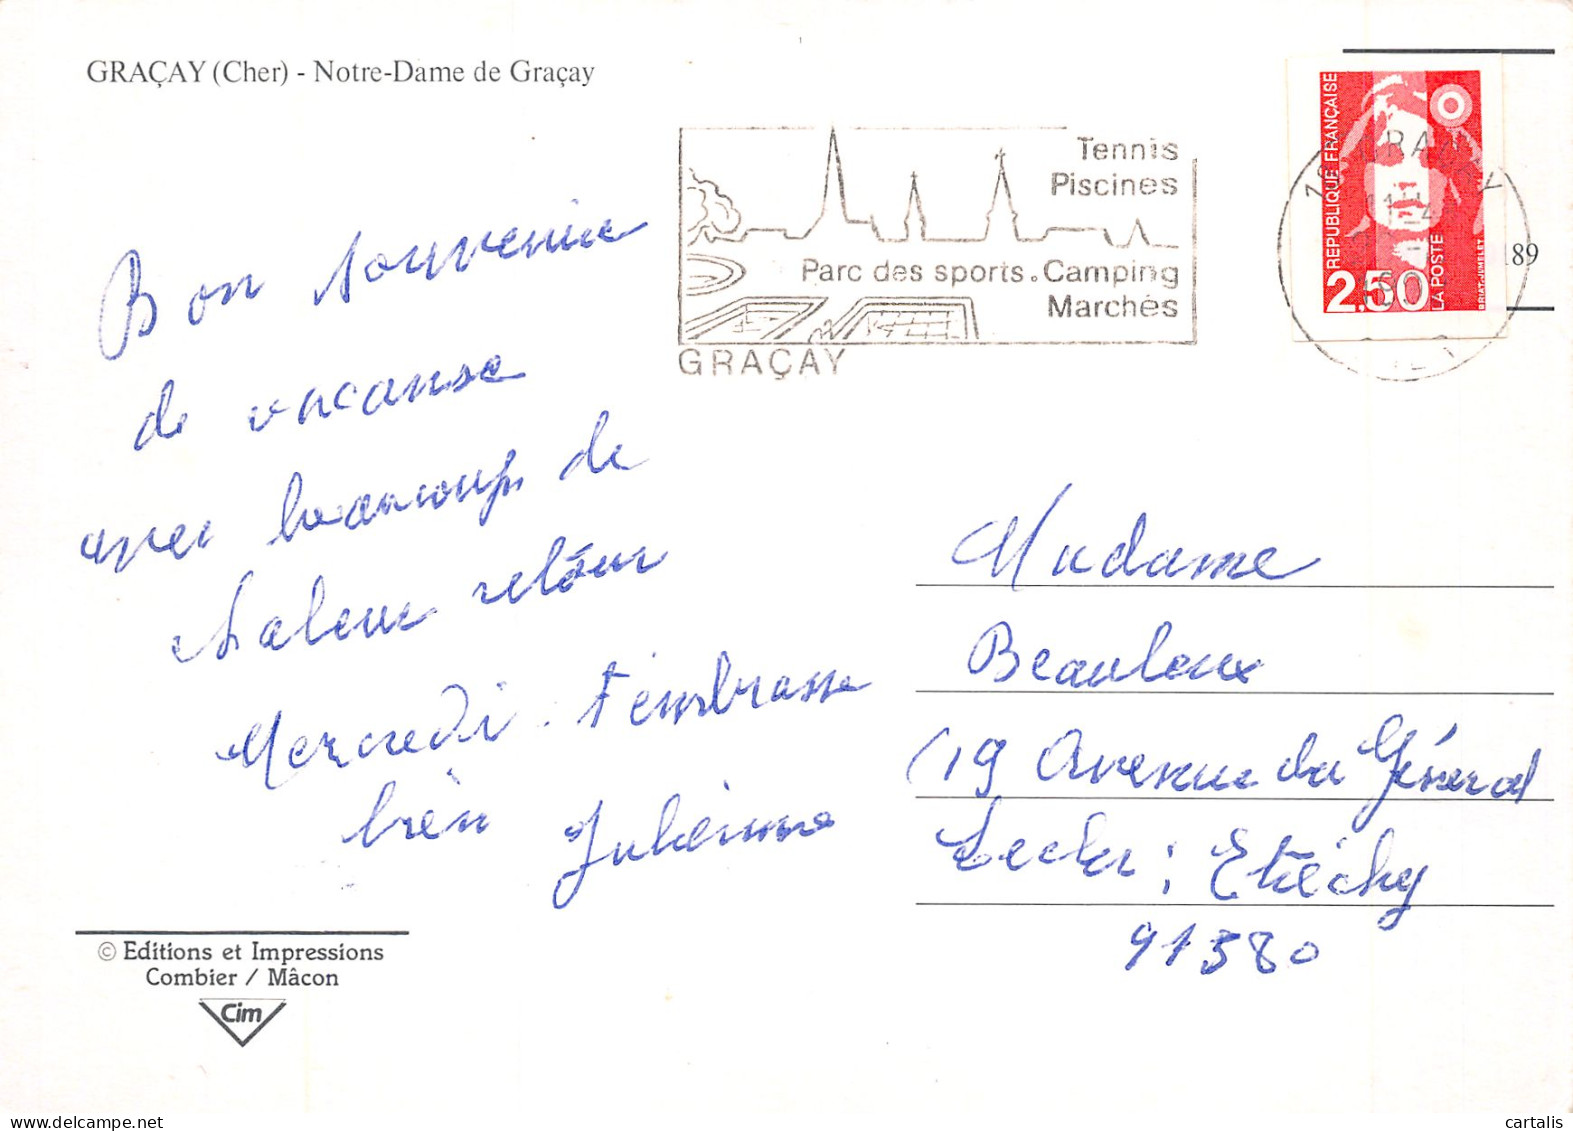 GRAÇAY (Cher) - Notre-Dame de Graçay
Tennis
Piscines
Parc des sports. Camping
Marchés
GRAÇAY
REPUBLIQUE FRANÇAISE
2,50
LA POSTE
BRIAT-JUMELET
189
Bon souvenir
de vacanse
avec beaucoup de
chaleur retour
Mercredi. t'embrasse
bien
Julienne
Madame
Beauleux
19 Avenue du Général
Lecler : Etréchy
91580
© Editions et Impressions
Combier / Mâcon
Cim
cartalis